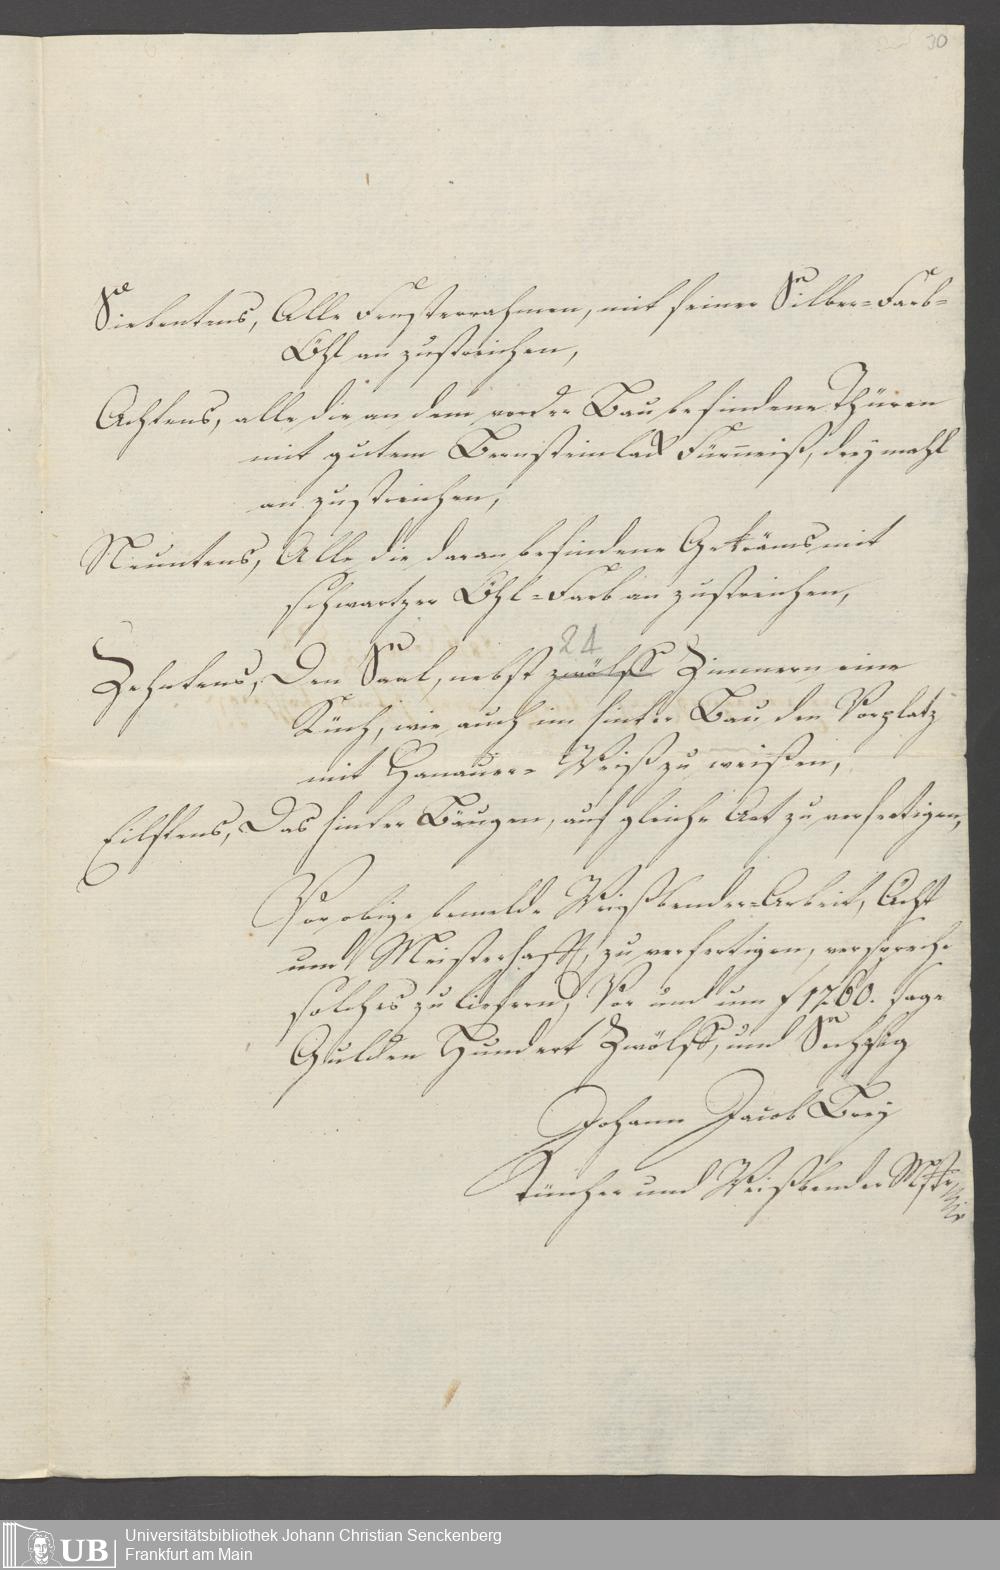 30
Siebentens, Alle Fensterrahmen, mit feiner Silber-Farb-
Öhl an zustreichen,
Achtens, alle die an dem vorder Bau befindene Thüren
mit gutem Bernsteinlack Fürneiß, dreymahl
an zustreichen,
Neuntens, Alle die daran befindene Gekräms mit
schwartzer Öhl-Farb an zustreichen,
24
Zehntens, Den Saal, nebst zwölff Zimmern eine
Küch, wie auch im hinter Bau den Vorplatz
mit Hanauer- Weiß zu weißen,
Eilftens, Das hinter Bäugen, auf gleiche Art zu verfertigen,
Vor obige bemelde Weißbender-Arbeit, Ächt
und Meisterhafft, zu verfertigen, verspreche
solches zu liefern, Vor und um f 1260. sage
Gulden Hundert Zwölff, und Sechzig
Johann Jacob Brey
Tüncher und Weißbender Mstr
Universitätsbibliothek Johann Christian Senckenberg
Frankfurt am Main
UB